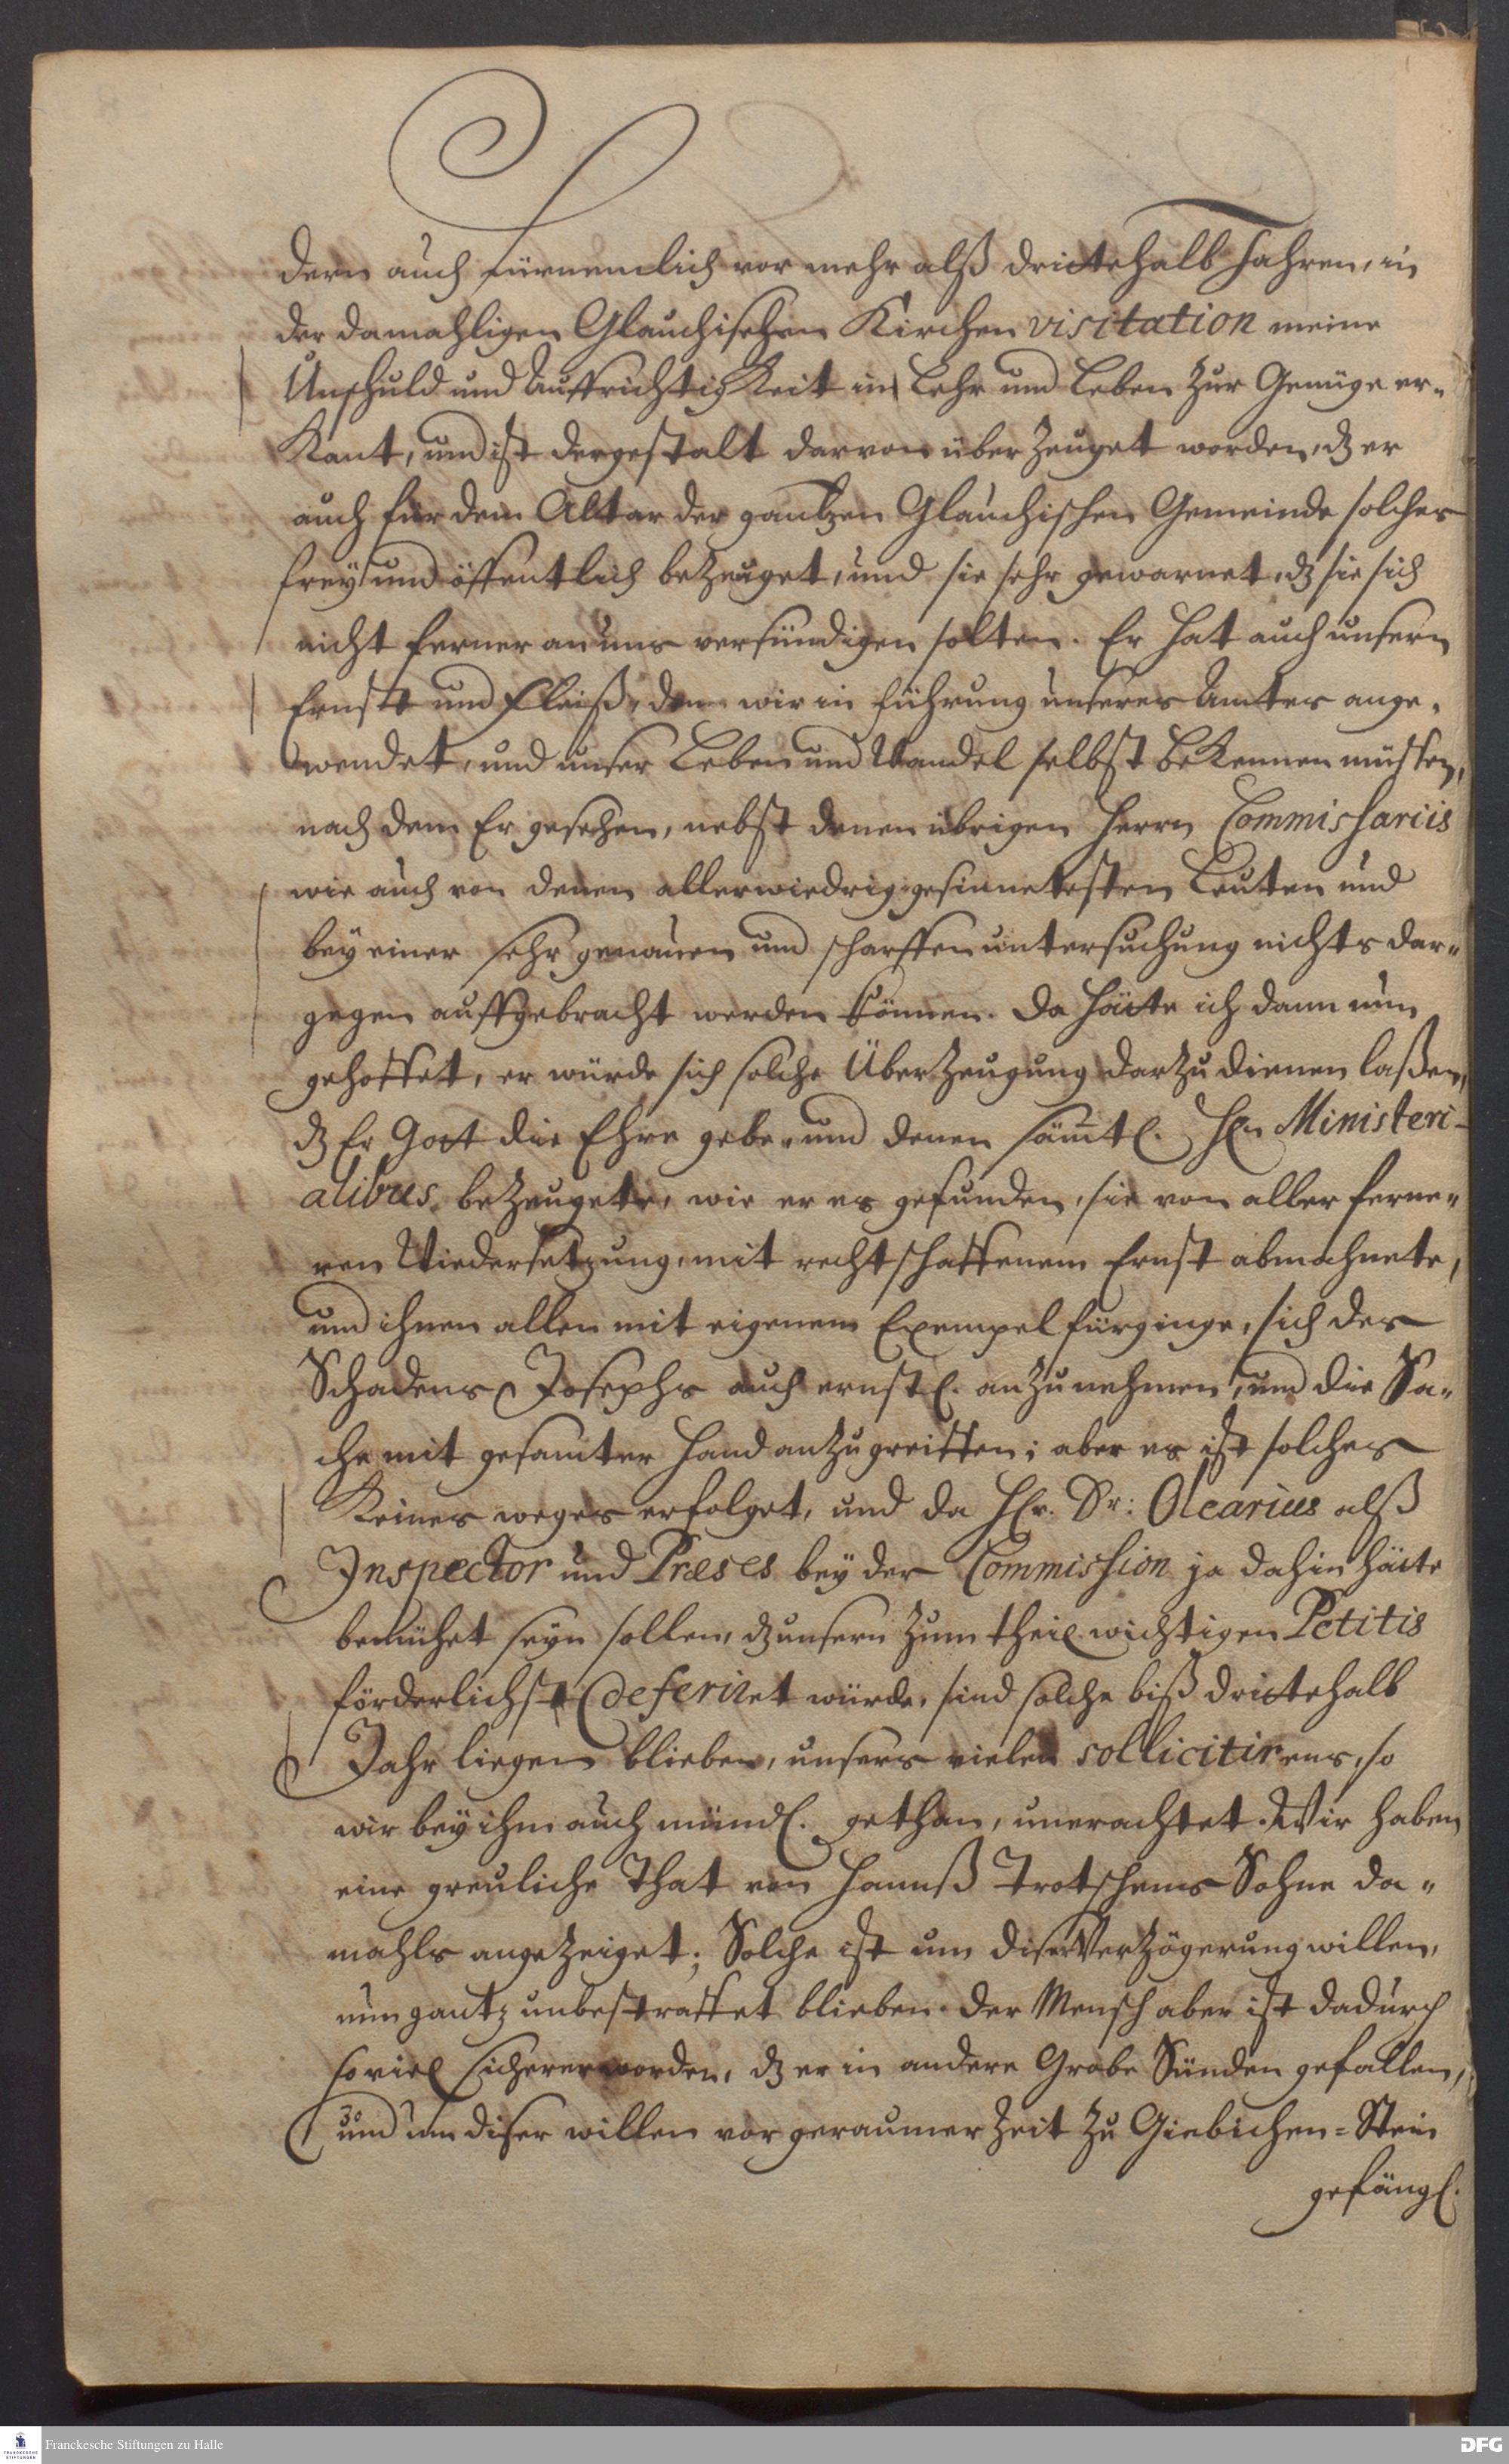 dern auch fürnemlich vor mehr alß drittehalb Jahren, in
der damahligen Glauchischen Kirchen visitation meine
Unschuld und Auffrichtigkeit in Lehr und Leben zur Genüge er-
kant, und ist dergestalt darvon überzeuget worden, dz er
auch für dem Altar der gantzen Glauchischen Gemeinde solches
frey und öffentlich bezeuget, und sie sehr gewarnet, dz sie sich
nicht ferner an uns versündigen solten. Er hat auch unsern
Ernst und Fleiß, den wir in führung unseres Amtes ange-
wendet, und unser Leben und Wandel selbst bekennen müssen,
nach dem Er gesehen, nebst denen übrigen Herrn Commissariis
wie auch von denen allerwiedriggesinnetesten Leuten und
bey einer sehr genauen und scharffen untersuchung nichts dar-
gegen auffgebracht werden können. Da hätte ich dann nun
gehoffet, er würde sich solche Überzeugung darzu dienen laßen,
dz Er Gott die Ehre gebe, und denen sämtl. Hn Ministeri-
alibus bezeugete, wie er es gefunden, sie von aller ferne-
ren Wiedersetzung, mit rechtschaffenem Ernst abmahnete,
und ihnen allen mit eigenem Exempel fürginge, sich des
Schadens Josephs auch ernstl. anzunehmen, und die Sa-
che mit gesamter Hand anzugreiffen; aber es ist solches
keines weges erfolget, und da Hr. Dr: Olearius alß
Inspector und Præses bey der Commission ja dahin hätte
bemühet seyn sollen, dz unsern zum theil wichtigen Petitis
förderlichst deferiret würde, sind solche biß drittehalb
Jahr liegen blieben, unsers vielen sollicitirens, so
wir bey ihm auch mündl. gethan, unerachtet. Wir haben
eine greuliche That von Hannß Trotschens Sohne da-
mahls angezeiget; Solche ist um diser Verzögerung willen,
nun gantz unbestraffet blieben. Der Mensch aber ist dadurch
so viel sicherer worden, dz er in andere Grobe Sünden gefallen,
und um diser willen vor geraumer Zeit zu Giebichen=Stein
gefängl.
Franckesche Stiftungen zu Halle
DFG